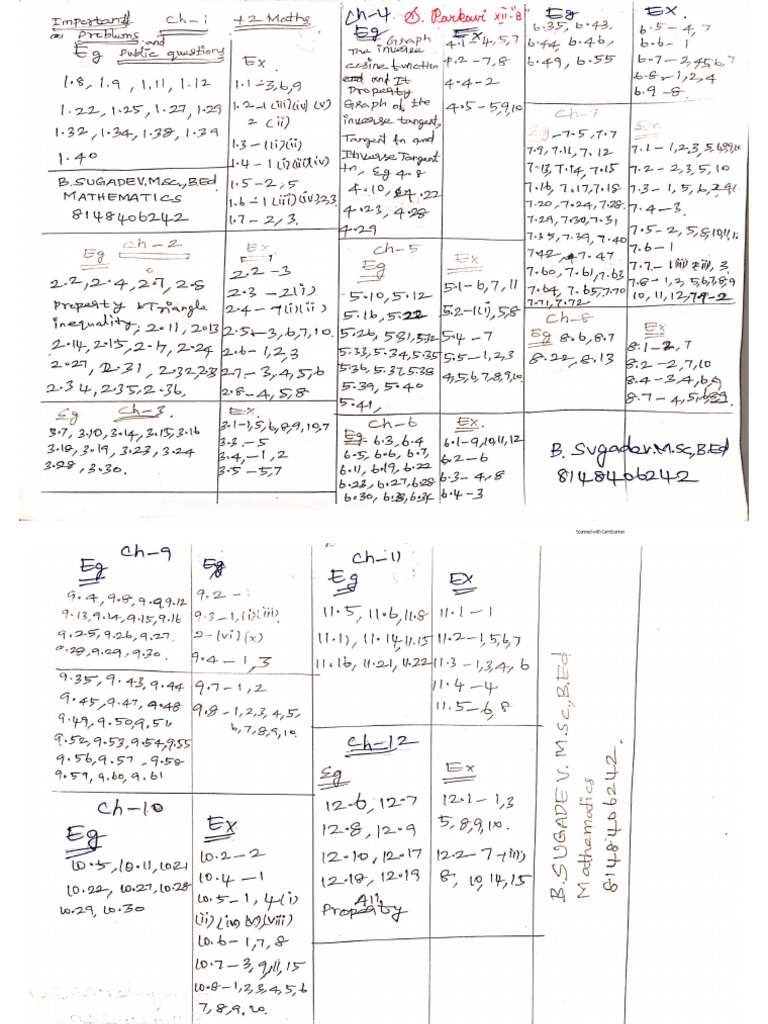 Important Ch-1 +2 Maths
Problems and
Eg Public questions
Ex
1.8, 1.9, 1.11, 1.12
1.22, 1.25, 1.27, 1.29
1.32, 1.34, 1.38, 1.39
1.40
1.1-3,6,9
1.2-1(iii)(iv)(v)
2(ii)
1.3-1(i)(ii)
1.5-2,5
1.7-2,3.
B.SUGADEV.M.Sc,B.Ed
MATHEMATICS
8148406242
Ch-2
Eg
2.2, 2.4, 2.7, 2.8
Property & Triangle
inequality, 2.11, 2.13
2.14, 2.15, 2.17, 2.24
2.27, 2.31, 2.32, 2.33
2.34, 2.35, 2.36.
Ex
2.2-3
2.3-2(i)
2.4-7(i)(ii)
2.5-3,6,7,10.
2.6-1,2,3
2.7-3,4,5,6
2.8-4,5,8
Eg Ch-3.
3.7, 3.10, 3.14, 3.15, 3.16
3.18, 3.19, 3.23, 3.24
3.28, 3.30.
Ex
3.1-1,5,6,8,9,10,7
3.3-5
3.4,-1,2
3.5-5,7
Ch-4 S. Parkavi XII-'B'
Eg Graph
The inverse
cosine function
and It
Property
Graph of the
inverse tangent,
Tangent fn and
Inverse Tangent
fn, Eg 4.8
4.10, 4.22
4.23, 4.28
4.29
Ex
4.1-4,5,7
4.2-7,8
4.4-2
4.5-5,9,10
Ch-5
Eg
5.10, 5.12
5.16, 5.22
5.26, 5.31, 5.32
5.33, 5.34, 5.35
5.36, 5.37, 5.38
5.39, 5.40
5.41,
Ex
5.1-6,7,11
5.2-1(i),5,8
5.4-7
5.5-1,2,3
4,5,6,7,8,9,10.
Ch-6
Eg 6.3, 6.4
6.5, 6.6, 6.7,
6.11, 6.19, 6.22
6.23, 6.27, 6.28
6.30, 6.33, 6.34
Ex
6.1-9,10,11,12
6.2-6
6.3-4,8
6.4-3
Eg
6.35, 6.43,
6.44, 6.46,
6.49, 6.55
Ex
6.5-4,7
6.6-1
6.7-2,4,5,6,7
6.8-1,2,4
6.9-8
Ch-7
Eg-7.5, 7.7
7.9, 7.11, 7.12
7.13, 7.14, 7.15
7.16, 7.17, 7.18
7.20, 7.24, 7.28.
7.29, 7.30, 7.31
7.35, 7.39, 7.40
7.42, 7.47
7.60, 7.61, 7.63
7.64, 7.65, 7.70
7.71, 7.72
Ex
7.2-2,3,5,10
7.4-3.
7.5-2,5,8,10,11,12
7.6-1
7.8-1,2,5,6,7,8,9
10,11,12, 7.9-2
Ch-8
Eg 8.6, 8.7
8.22, 8.13
Ex
8.1-2,7
8.2-2,7,10
8.4-3,4,6,9
B. Sugadev.M.Sc,B.Ed
8148406242
Scanned with CamScanner
Ch-9
Eg
9.4, 9.8, 9.9, 9.12
9.13, 9.14, 9.15, 9.16
9.25, 9.26, 9.27.
9.28, 9.29, 9.30.
9.35, 9.43, 9.44
9.45, 9.47, 9.48
9.49, 9.50, 9.51
9.52, 9.53, 9.54, 9.55
9.56, 9.57, 9.58
9.59, 9.60, 9.61
Eg
9.2-1
9.3-1,(i)(iii)
2-(vi)(x)
9.4-1,3
9.7-1,2
9.8-1,2,3,4,5,
6,7,8,9,10.
Ch-10
Eg
10.5, 10.11, 10.21
10.22, 10.27, 10.28
10.29, 10.30
Ex
10.2-2
10.4-1
10.5-1,4(i)
(ii)(iv)(v)(viii)
10.6-1,7,8
10.7-3,9,11,15
10.8-1,2,3,4,5,6
7,8,9,10.
Ch-11
Eg
11.5, 11.6, 11.8
11.11, 11.14, 11.15
11.16, 11.21, 11.22
Ex
11.1-1
11.2-1,5,6,7
11.3-1,3,4,6
11.4-4
11.5-6,8
Ch-12
Eg
12.6, 12.7
12.8, 12.9
12.10, 12.17
12.18, 12.19
All
Property
Ex
12.1-1,3
5,8,9,10.
12.2-7-(iii)
8, 10,14,15
B.SUGADEV. M.Sc,B.Ed
Mathematics
8148406242.